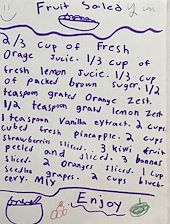 Fruit Salad Yum
2/3 cup of fresh
Orage Jucie. 1/3 cup of
fresh lemon Jucie. 1/3 cup
of packed brown suger. 1/2
teaspoon grated Orange Zest.
1/2 teaspoon gratd lemon Zest
1 teaspoon Vanilla extract. 2 cups
cubed fresh pineapple. 2 cups
strawberries sliced. 3 kiwi fruit
peeled and sliced. 3 bannas
sliced. 2 oranges sliced. 1 cup
seedles grapes. 2 cups blueb-
cery. Mix
Enjoy